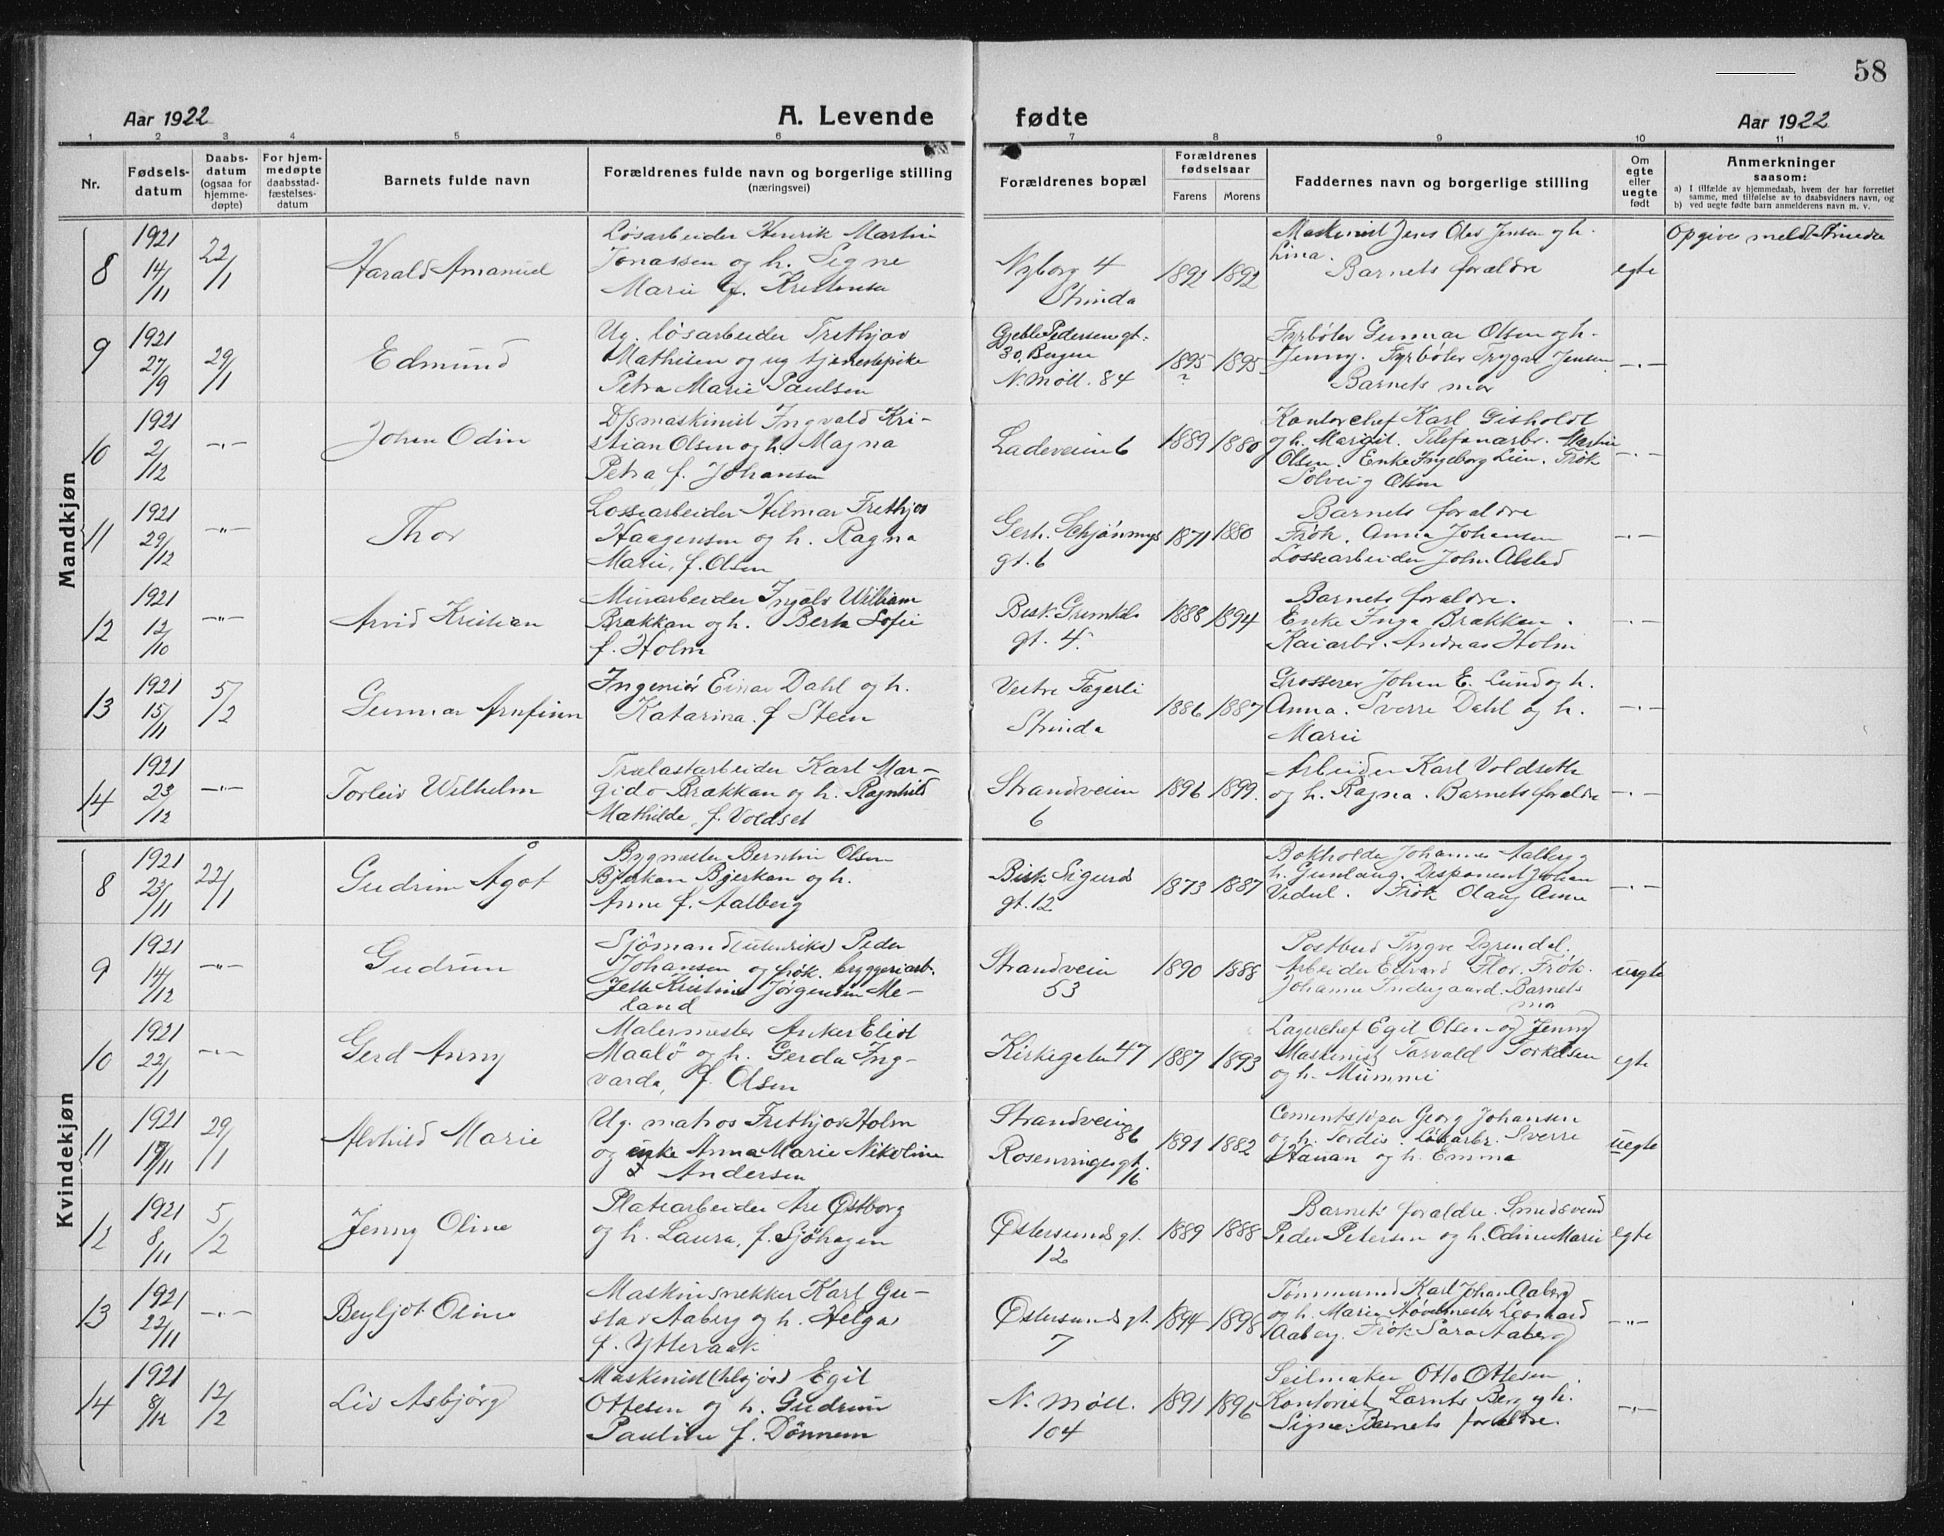 58
Aar 1922 A. Levende fødte Aar 1922
1 2 3 4 5 6 7 8 9 10 11
Nr.
Fødsels-
datum
Daabs-
datum
(ogsaa for
hjemme-
døpte)
For hjem-
medøpte
daabsstad-
fæstelses-
datum
Barnets fulde navn
Forældrenes fulde navn og borgerlige stilling
(næringsvei)
Forældrenes bopæl
Forældrenes
fødselsaar
Farens Morens
Faddernes navn og borgerlige stilling
Om
egte
eller
uegte
født
Anmerkninger
saasom:
a) I tilfælde av hjemmedaab, hvem der har forrettet
samme, med tilføielse av to daabsvidners navn, og
b) ved uegte fødte barn anmelderens navn m. v.
Mandkjøn
8
1921
14/11
22/1
Harald Amanuel
Løsarbeider Henrik Martin
Jonassen og h. Signe
Marie f. Kristensen
Nyborg 4
Strinda
1892 1892
Maskinist Jens Olav Jensen og h.
Lina.
Barnets forældre
egte
Opgives meldt Strinda
9
1921
27/9
29/1
Edmund
Ug. løsarbeider Frithjov
Mathisen og ug tjenestepike
Petra Marie Paulsen
Gjeble Pedersens gt.
30, Bergen
N. Møll. 84
1895 1895
?
Fyrbøter Gunnar Olsen og h.
Jenny. Fyrbøter Trygve Jensen.
Barnets mor
-"-
10
1921
2/12
-"-
Johan Odin
D/s maskinist Ingvald Kri-
stian Olsen og h. Magna
Petra, f. Johansen
Ladeveien 6
1889 1880
Kontorchef Karl Gisholdt
og h. Margit. Telefonarbr. Martin
Olsen. Enke Ingeborg Lien. Frøk
Solveig Olsen
-"-
11
1921
29/12
-"-
Thor
Lossearbeider Hilmar Frithjov
Haagensen og h. Ragna
Marie, f. Olsen
Gerh. Schjønnings
gt. 6
1871 1880
Barnets forældre
Frøk. Anna Johansen
Lossearbeider John Alstad
-"-
12
1921
12/10
-"-
Arvid Kristian
Murarbeider Ingolv William
Brækkan og h. Berta Sofie
f. Holm
Bisk. Grimkels
gt. 4.
1888 1894
Barnets forældre.
Enke Inga Brækkan.
Kaiarbr. Andreas Holm
-"-
13
1921
15/11
5/2
Gunnar Arnfinn
Ingeniør Einar Dahl og h.
Katarina. f Steen
Vestre Fagerli
Strinda
1886 1887
Grosserer Johan E. Lund og h.
Anna. Sverre Dahl og h.
Marie
-"-
14
1921
23/12
-"-
Torleiv Wilhelm
Trælastarbeider Karl Mar-
gido Brækkan og h. Ragnhild
Mathilde, f. Voldset
Strandveien
6
1896 1899.
Arbeider Karl Voldseth
og h. Ragna. Barnets forældre
-"-
Kvindekjøn
8
1921
23/11
22/1
Gudrun Ågot
Bygmester Berntin Olsen
Bjerkan Bjerkan og h.
Anne f. Aalberg
Bisk Sigurds
gt. 12
1873 1887
Bokholder Johannes Aalberg
h. Gunlaug. Disponent Johan
Frøk Olaug
-"-
9
1921
14/12
-"-
Gudrun
Sjömand (utenriks) Peder
Johansen og frøk. bryggeriarb.
Kristine Jørgensen Me-
land
Strandveien
53
1890 1888
Postbud Trygve Dyrendal.
Arbeider Edvard Flor. Frøk.
Johanne Indergaard. Barnets
mor
uegte
10
1921
22/1
-"-
Gerd Anny
Malermester Anker Eliot
Maalø og h. Gerda Ing-
varda, f. Olsen
Kirkegaten 47
1887 1893
Lagerchef Egil Olsen og Jenny
Maskinist Torvald Torkelsen
og h. Mummi
egte
11
1921
17/11
29/1
Alvhild Marie
Ug. matros Frithjov Holm
og enke Anna Marie Nikoline
Andersen
Strandveien
86
Rosenvinges gt.
16
1891 1882
Cementstøper Georg Johansen
og h. Tordis. Løsarbr. Sverre
Hanan og h. Emma
uegte
12
1921
8/11
5/2
Jenny Oline
Platearbeider Are Østborg
og h. Laura, f. Sjøhagen
Østersunds gt.
12
1889 1888
Barnets forældre. Smedsvend
Peder Petersen og h. Odine Marie
egte
13
1921
22/11
-"-
Bergljot Oline
Maskinsnekker Karl Gu-
stav Aaberg og h. Helga
f. Ytteraak
Østersunds gt.
7
1894 1898
Tømmermand Karl Johan Aaberg
og h. Marie Hovmester Leonhard
Aaberg. Frøk Sara Aaberg
-"-
14
1921
8/12
12/2
Liv Asbjørg
Maskinist Egil
Ottesen og h. Gudrun
Pauline f. Dønnem
N. Møll.
104
1891 1896
Seilmaker Otto Ottesen.
Kontorist Lornts Berg og h.
Signe. Barnets forældre.
-"-